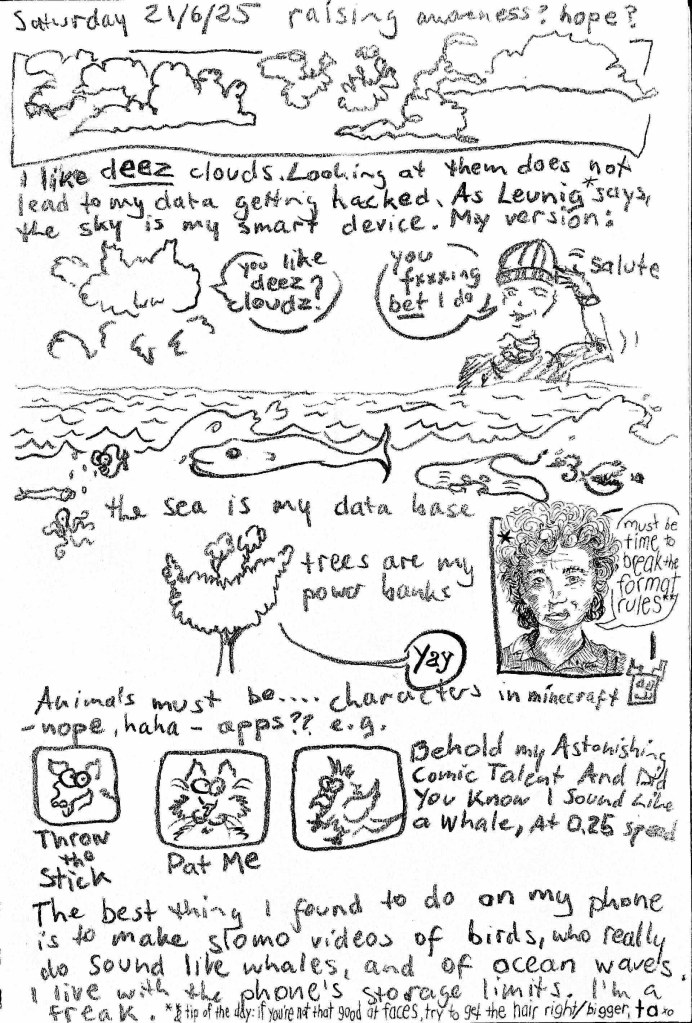 Saturday 21/6/25 raising awareness? hope?
I like deez clouds. Looking at them does not
lead to my data getting hacked. As Leunig* says,
the sky is my smart device. My version:
you like
deez
cloudz?
you
fxxxing
bet I do
salute
the sea is my data base
trees are my
power banks
Yay
*
must be
time to
break the
format
rules**
Animals must be.... characters in minecraft
- nope, haha - apps?? e.g.
Throw
the
Stick
Pat Me
Behold my Astonishing
Comic Talent And Did
You Know I Sound Like
a Whale, At 0.25 speed
The best thing I found to do on my phone
is to make slomo videos of birds, who really
do sound like whales, and of ocean waves.
I live with the phone's storage limits. I'm a
freak. ** tip of the day: if you're not that good at faces, try to get the hair right/bigger, ta xo